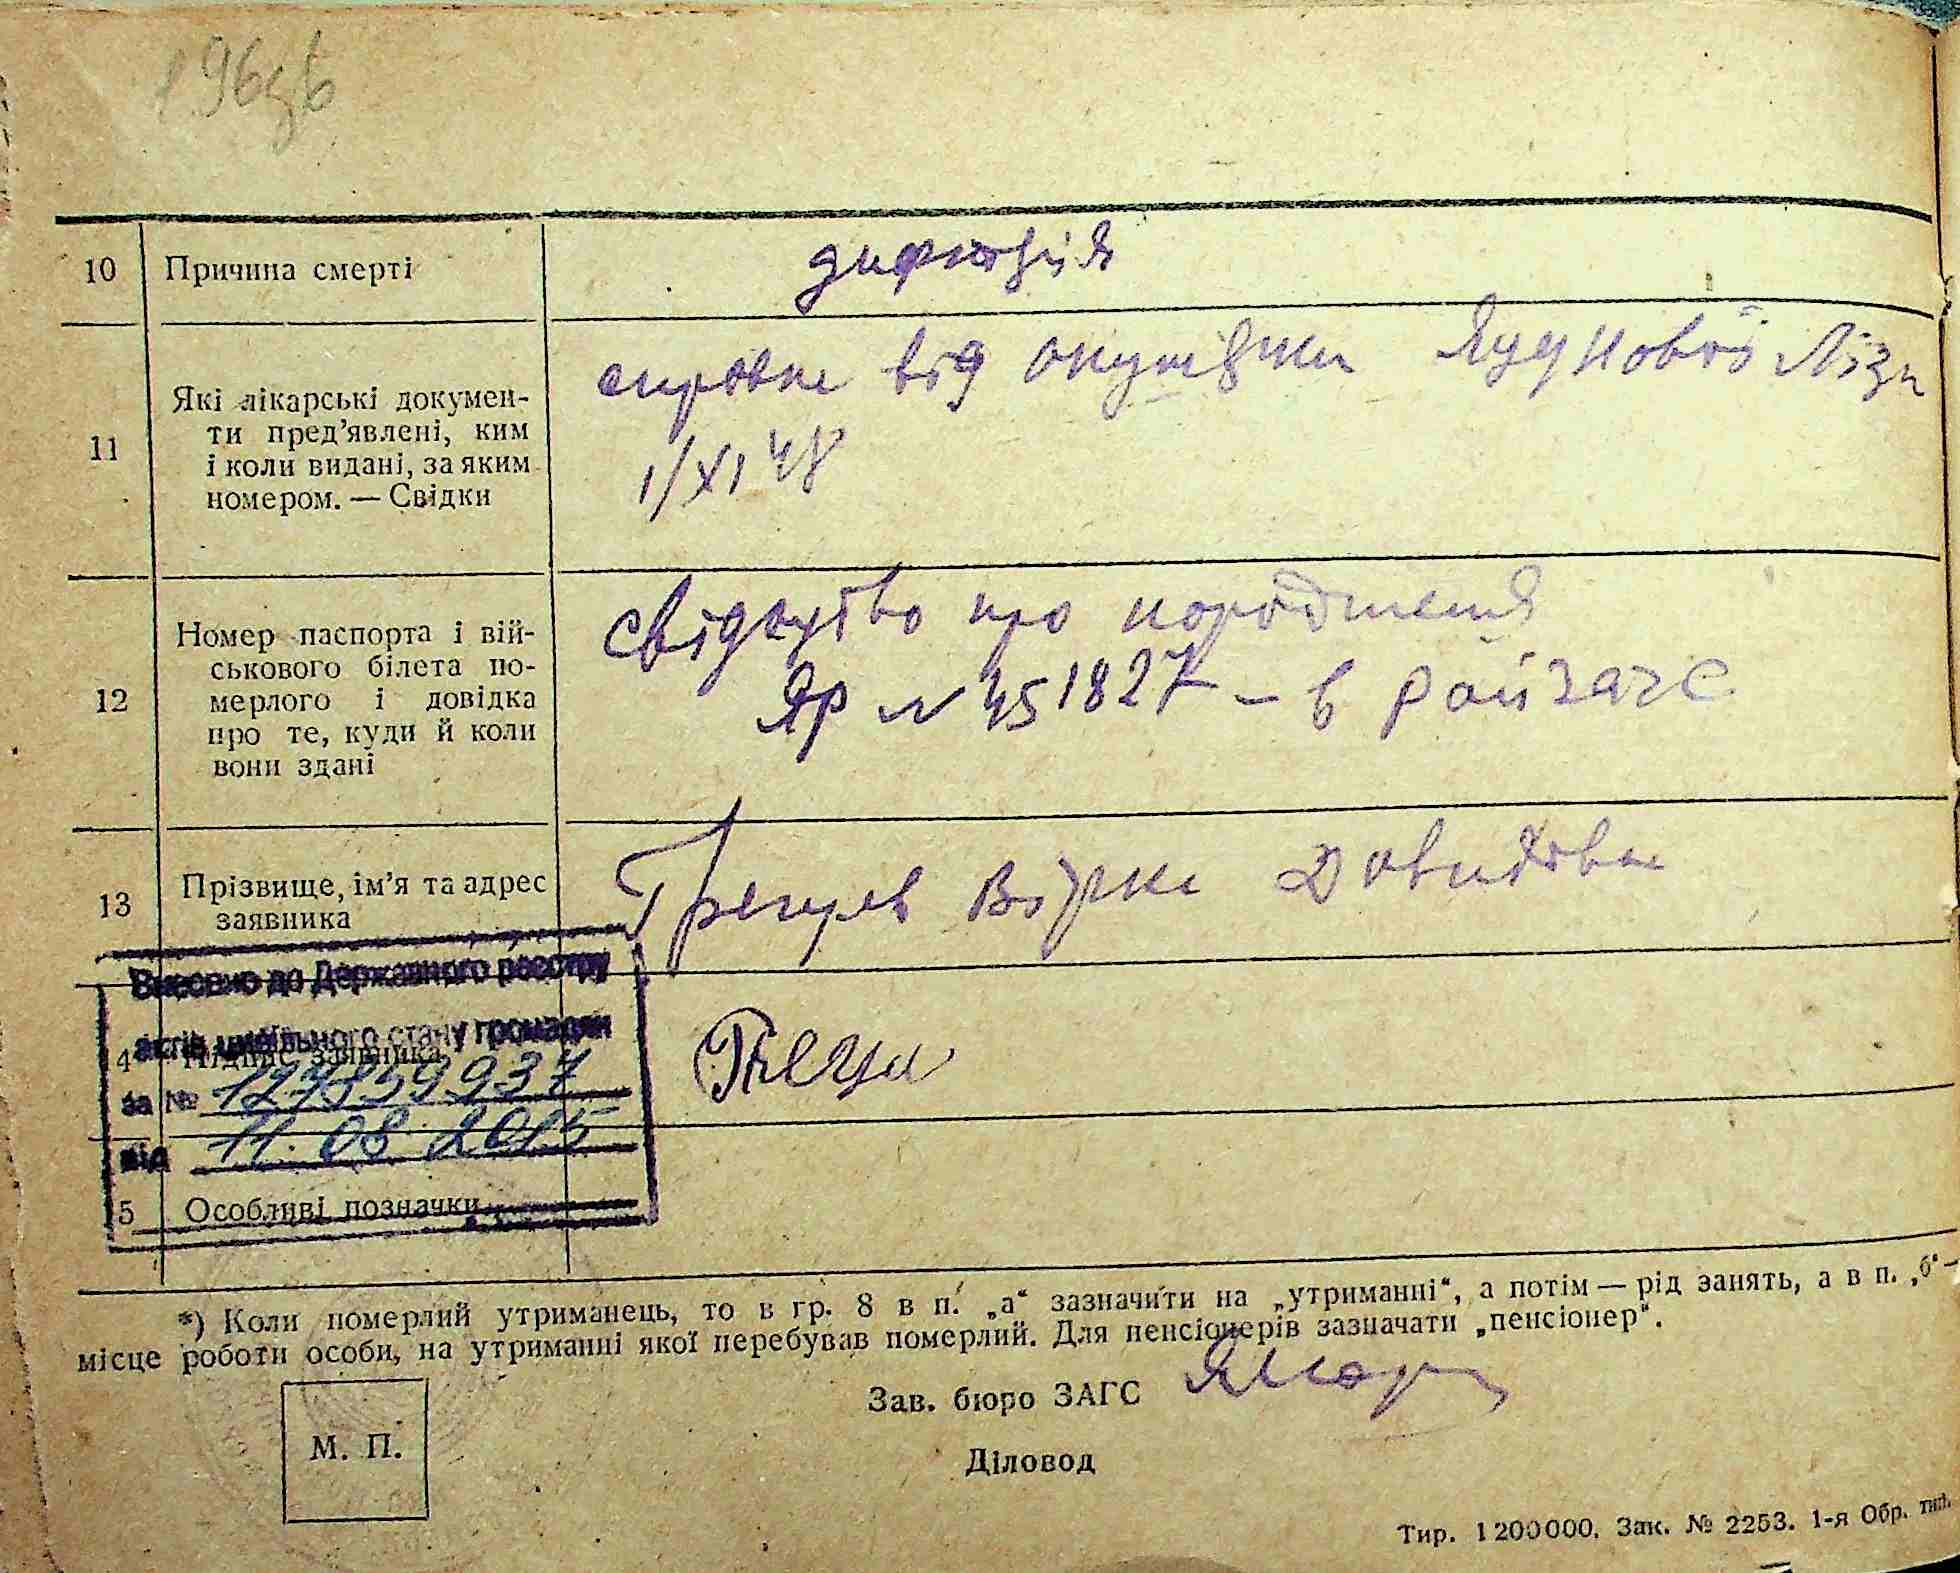 10 Причина смерті
дифтерія
11 Які лікарські докумен-
ти пред’явлені, ким
і коли видані, за яким
номером. — Свідки
від Лізи
1/XI 48
12 Номер паспорта і вій-
ськового білета по-
мерлого і довідка
про те, куди й коли
вони здані
свідоцтво про народження
ЯР № 451827 – в райзагс
13 Прізвище, ім’я та адрес
заявника
Давидовна
Внесено до Державного реєстру
актів цивільного стану громадян
4 Підпис заявника
за №
від 11.08.2015
5 Особливі позначки
*) Коли померлий утриманець, то в гр. 8 в п. „а“ зазначити на „утриманні“, а потім — рід занять, а в п. „б“ —
місце роботи особи, на утриманні якої перебував померлий. Для пенсіонерів зазначати „пенсіонер“.
Зав. бюро ЗАГС
М. П.
Діловод
Тир. 1200000. Зак. № 2253. 1-я Обр. тип.